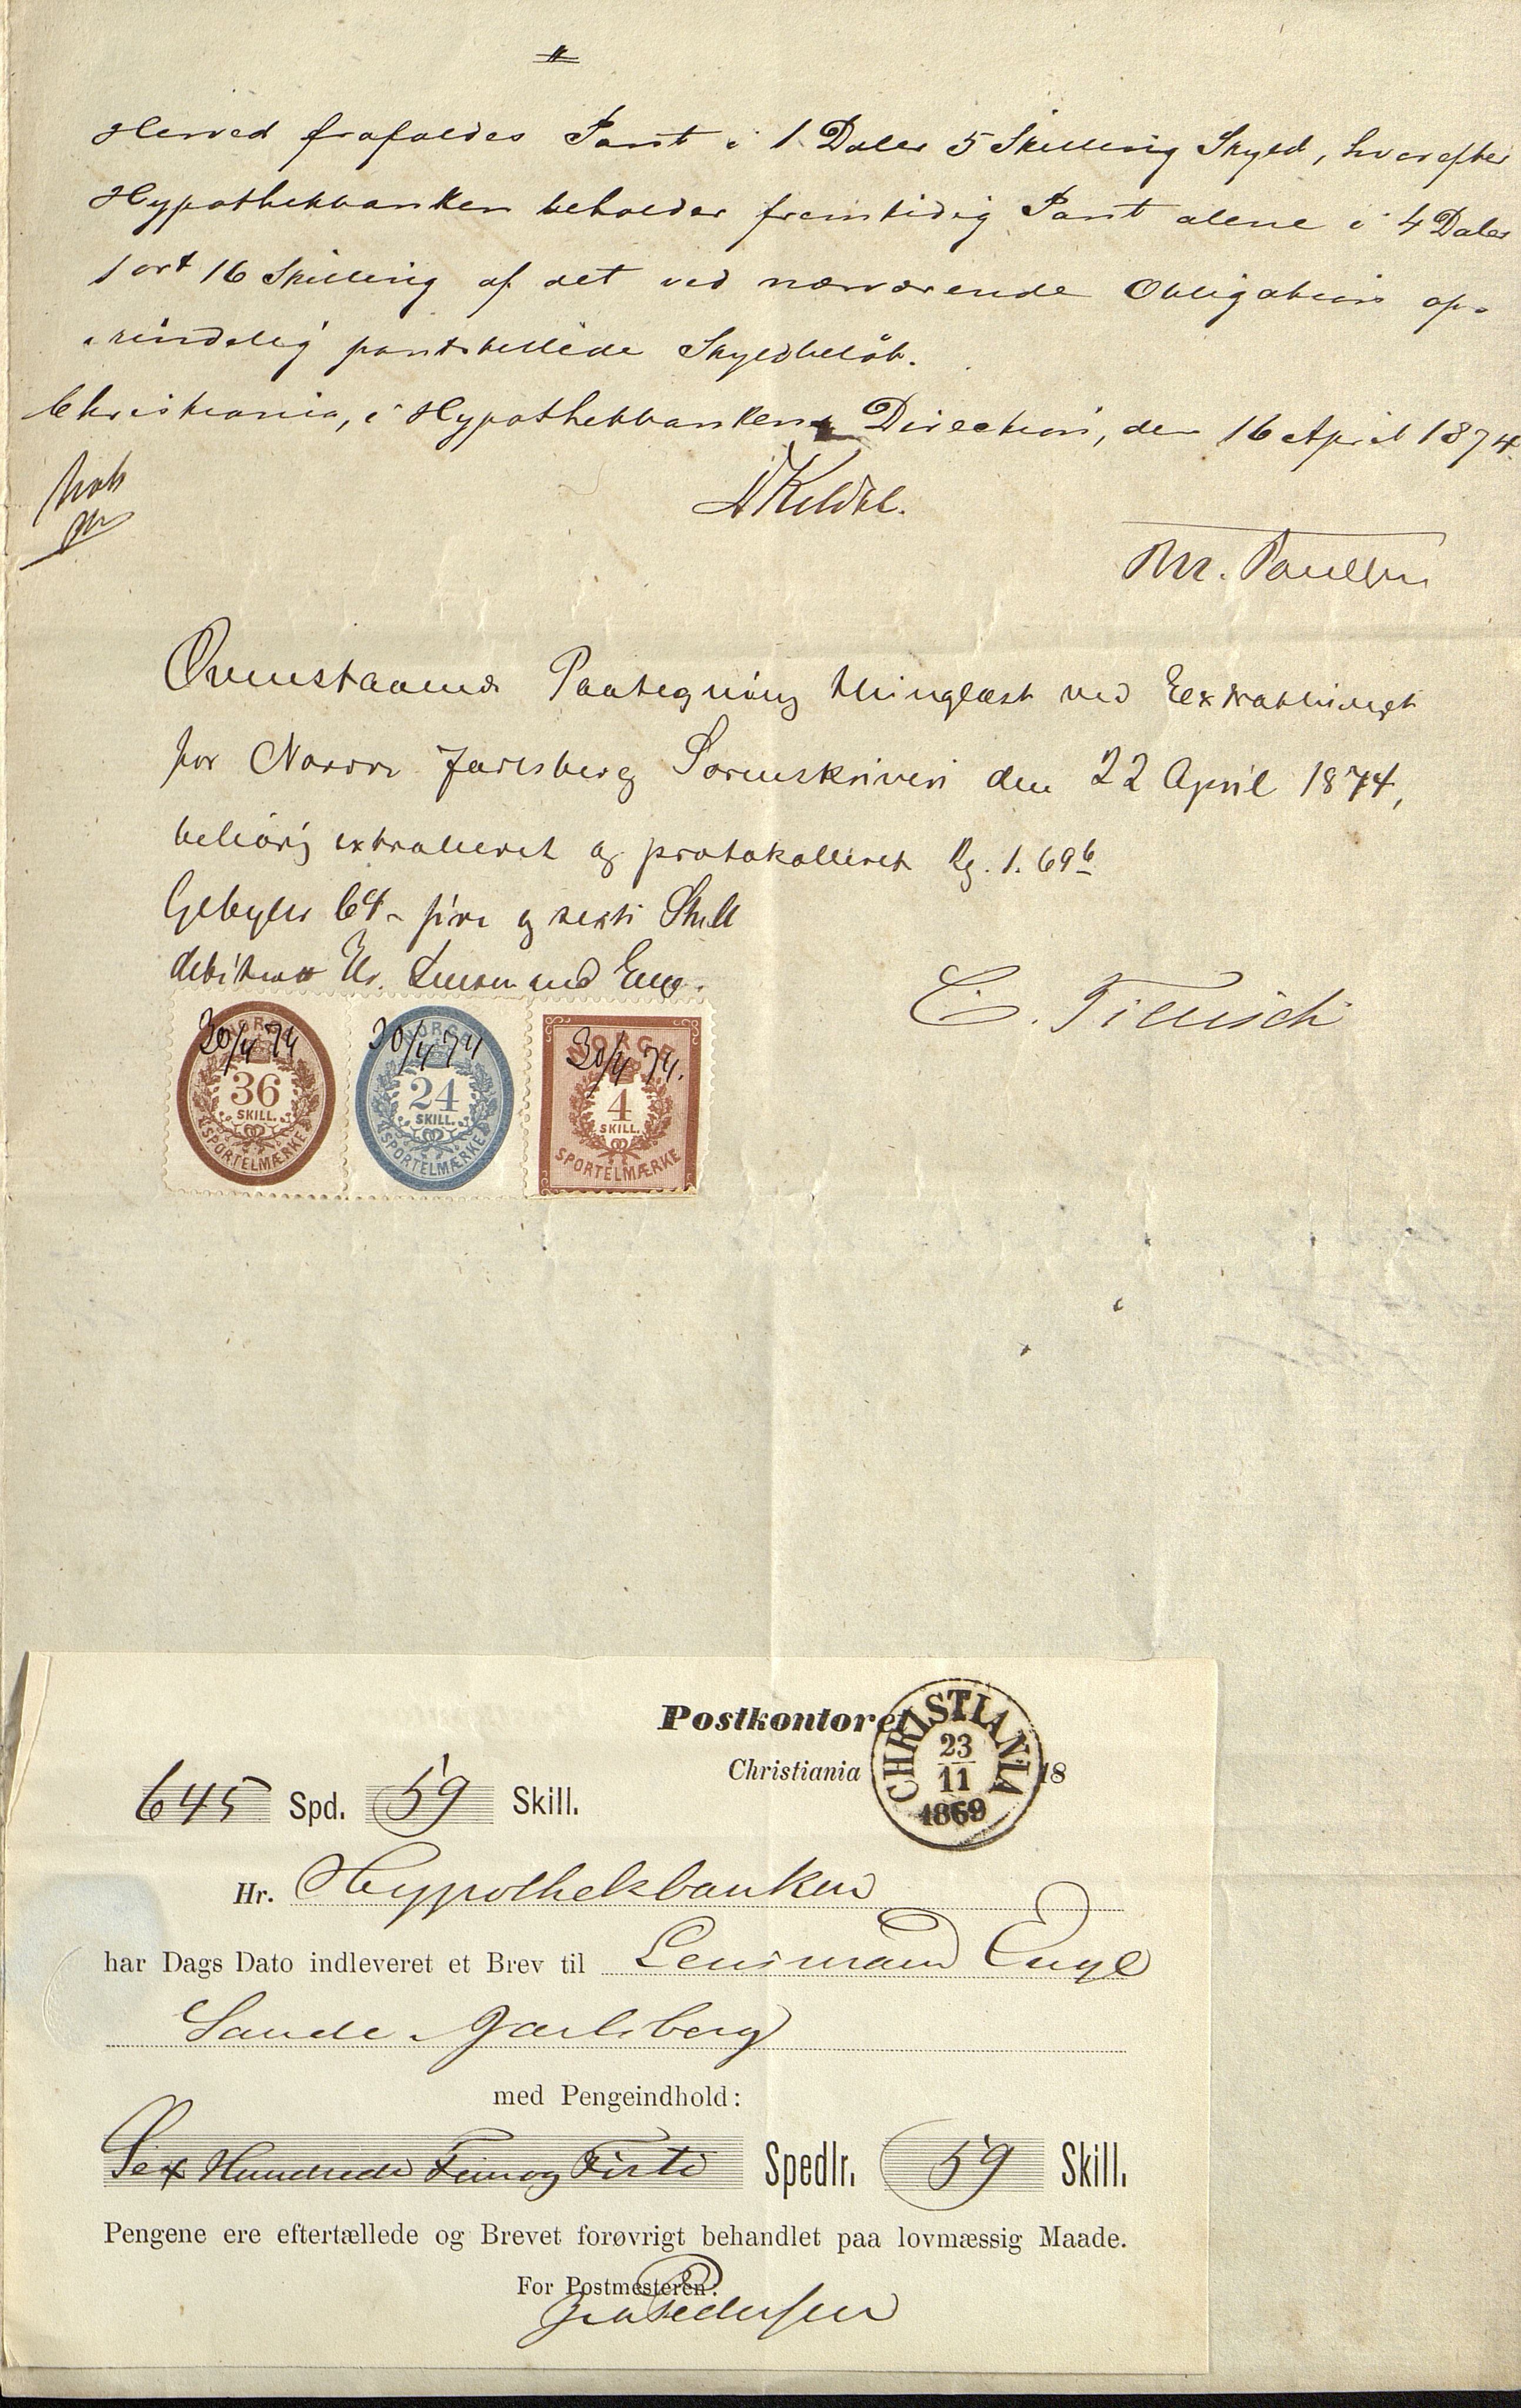 Herved frafaldes Pant i 1 Daler 5 Skilling Skyld, hvorefter
Hypothekbanken beholder fremtidig Pant alene i 4 Daler
1 ort 16 Skilling af det ved nærværende Obligation op-
rindelig pantstillede Skyldbeløb.
Christiania, i Hypothekbankens Direction, den 16 April 1874.
Ovenstaaende Paategning thinglæst ved Extrathinget
for Nordre Jarlsberg Sorenskriveri den 22 April 1874,
behørig extraheret og protokolleret
Gebyhr 64 - fire og sexti Skill
debiteret Hr. Lensmand Enge.
30/4 74
NORGE
36
SKILL.
SPORTELMÆRKE
30/4 74
NORGE
24
SKILL.
SPORTELMÆRKE
30/4 74.
NORGE
4
SKILL.
SPORTELMÆRKE
Postkontoret
Christiania 18
CHRISTIANIA
23
11
1869
645 Spd. 59 Skill.
Hr. Hypothekbanken
har Dags Dato indleveret et Brev til Lensmand Enge
Sande Jarlsberg
med Pengeindhold:
Sex Hundrede Fem og Firti Spedlr. 59 Skill.
Pengene ere eftertællede og Brevet forøvrigt behandlet paa lovmæssig Maade.
For Postmesteren:
Pedersen